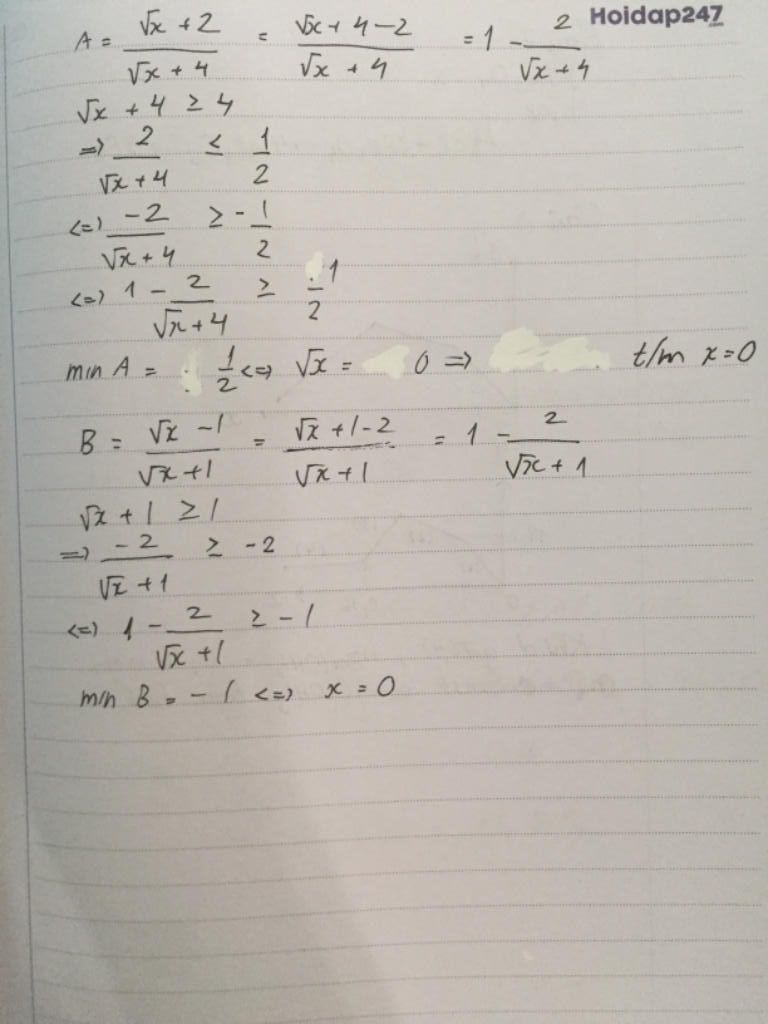 Hoidap247
A = (√x + 2)/(√x + 4) = (√x + 4 - 2)/(√x + 4) = 1 - 2/(√x + 4)
√x + 4 ≥ 4
=> 2/(√x + 4) ≤ 1/2
<=> -2/(√x + 4) ≥ -1/2
<=> 1 - 2/(√x + 4) ≥ 1/2
min A = 1/2 <=> √x = 0 => t/m x = 0
B = (√x - 1)/(√x + 1) = (√x + 1 - 2)/(√x + 1) = 1 - 2/(√x + 1)
√x + 1 ≥ 1
=> -2/(√x + 1) ≥ -2
<=> 1 - 2/(√x + 1) ≥ -1
min B = -1 <=> x = 0